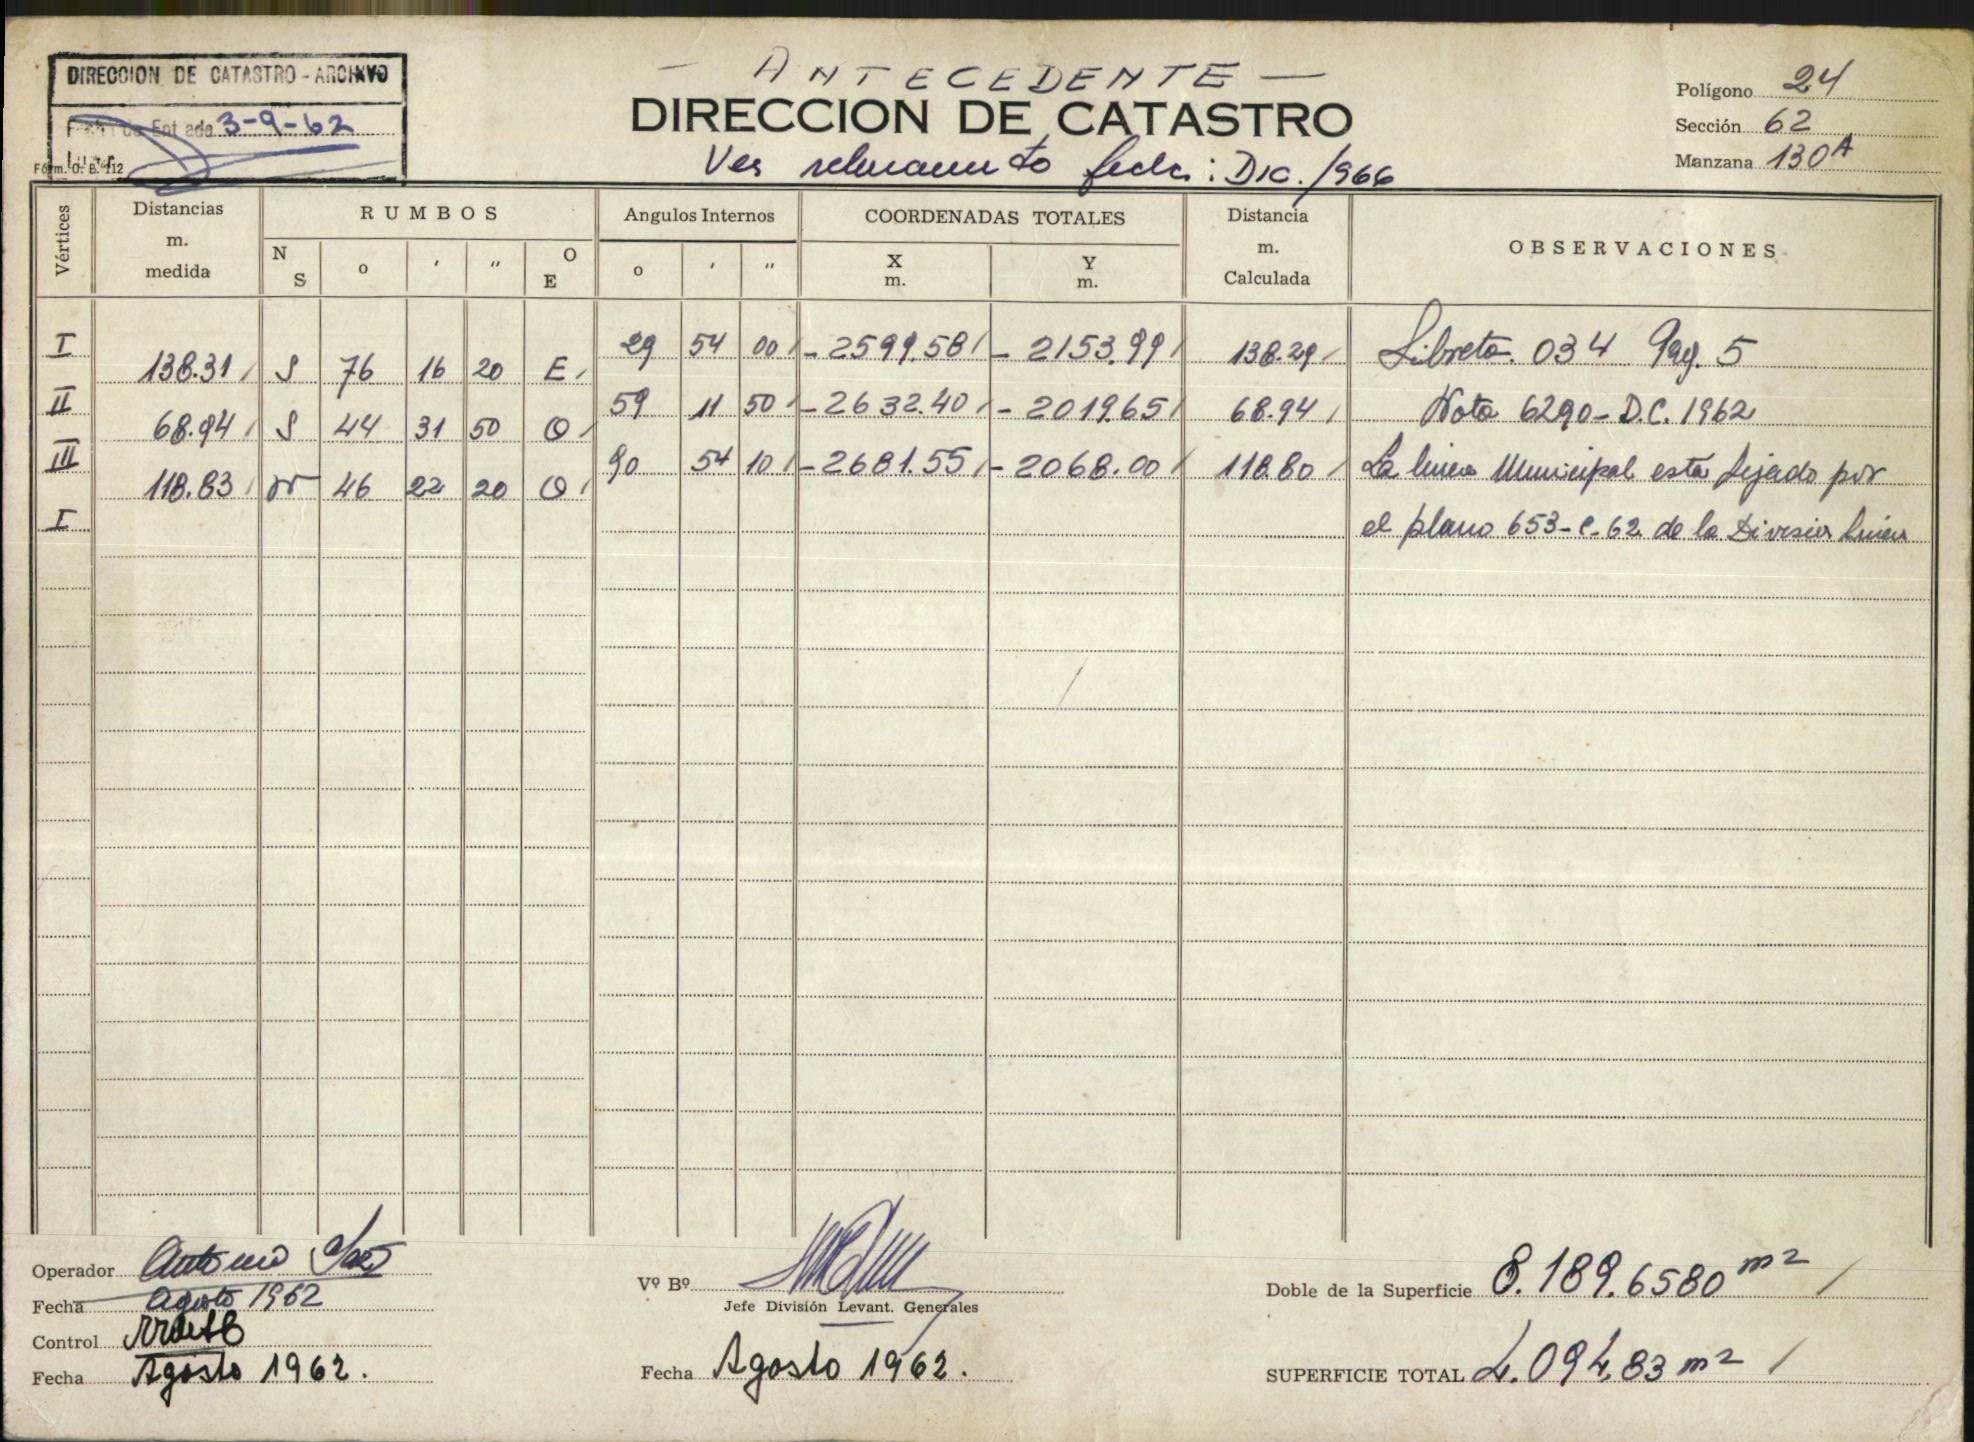 DIRECCION DE CATASTRO - ARCHIVO
3-9-62
Fórm. O. B. 112
— ANTECEDENTE —
DIRECCION DE CATASTRO
Ver relevamiento fecha: DIC./966
Polígono 24
Sección 62
Manzana 130A
Vértices
Distancias m. medida
RUMBOS
N S o ' " O E
Angulos Internos
o ' "
COORDENADAS TOTALES
X m. Y m.
Distancia m. Calculada
OBSERVACIONES
I 29 54 00 - 2599.58 - 2153.99 138.29 Libreta 034 Pag. 5
138.31 S 76 16 20 E
II 59 11 50 - 2632.40 - 2019.65 68.94 Nota 6290 - D.C. 1962
68.94 S 44 31 50 O
III 90 54 10 - 2681.55 - 2068.00 118.80 La linea Municipal esta fijado por
118.83 N 46 22 20 O
I el plano 653-C-62 de la Division Linea
Operador Antonio
Fecha Agosto 1962
Control
Fecha Agosto 1962.
Vº Bº
Jefe División Levant. Generales
Fecha Agosto 1962.
Doble de la Superficie 8.189.6580 m2
SUPERFICIE TOTAL 4.094,83 m2